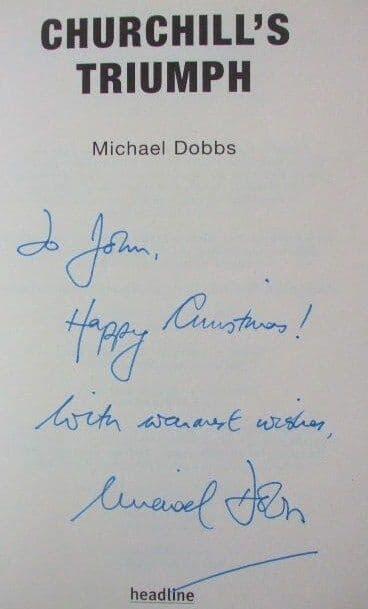 CHURCHILL'S
TRIUMPH
Michael Dobbs
To John,
Happy Christmas!
With warmest wishes,
Michael Dobbs
headline